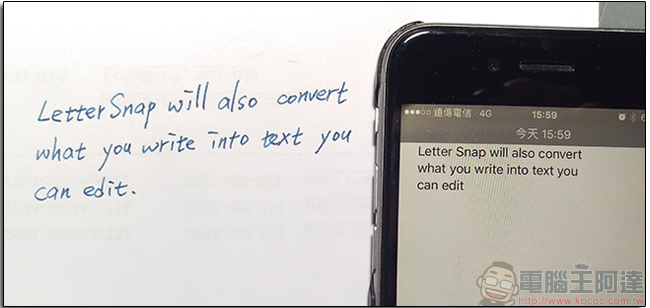 LetterSnap will also convert
what you write into text you
can edit.
遠傳電信 4G 15:59
今天 15:59
Letter Snap will also convert
what you write into text you
can edit
電腦王阿達
http://www.kocpc.com.tw